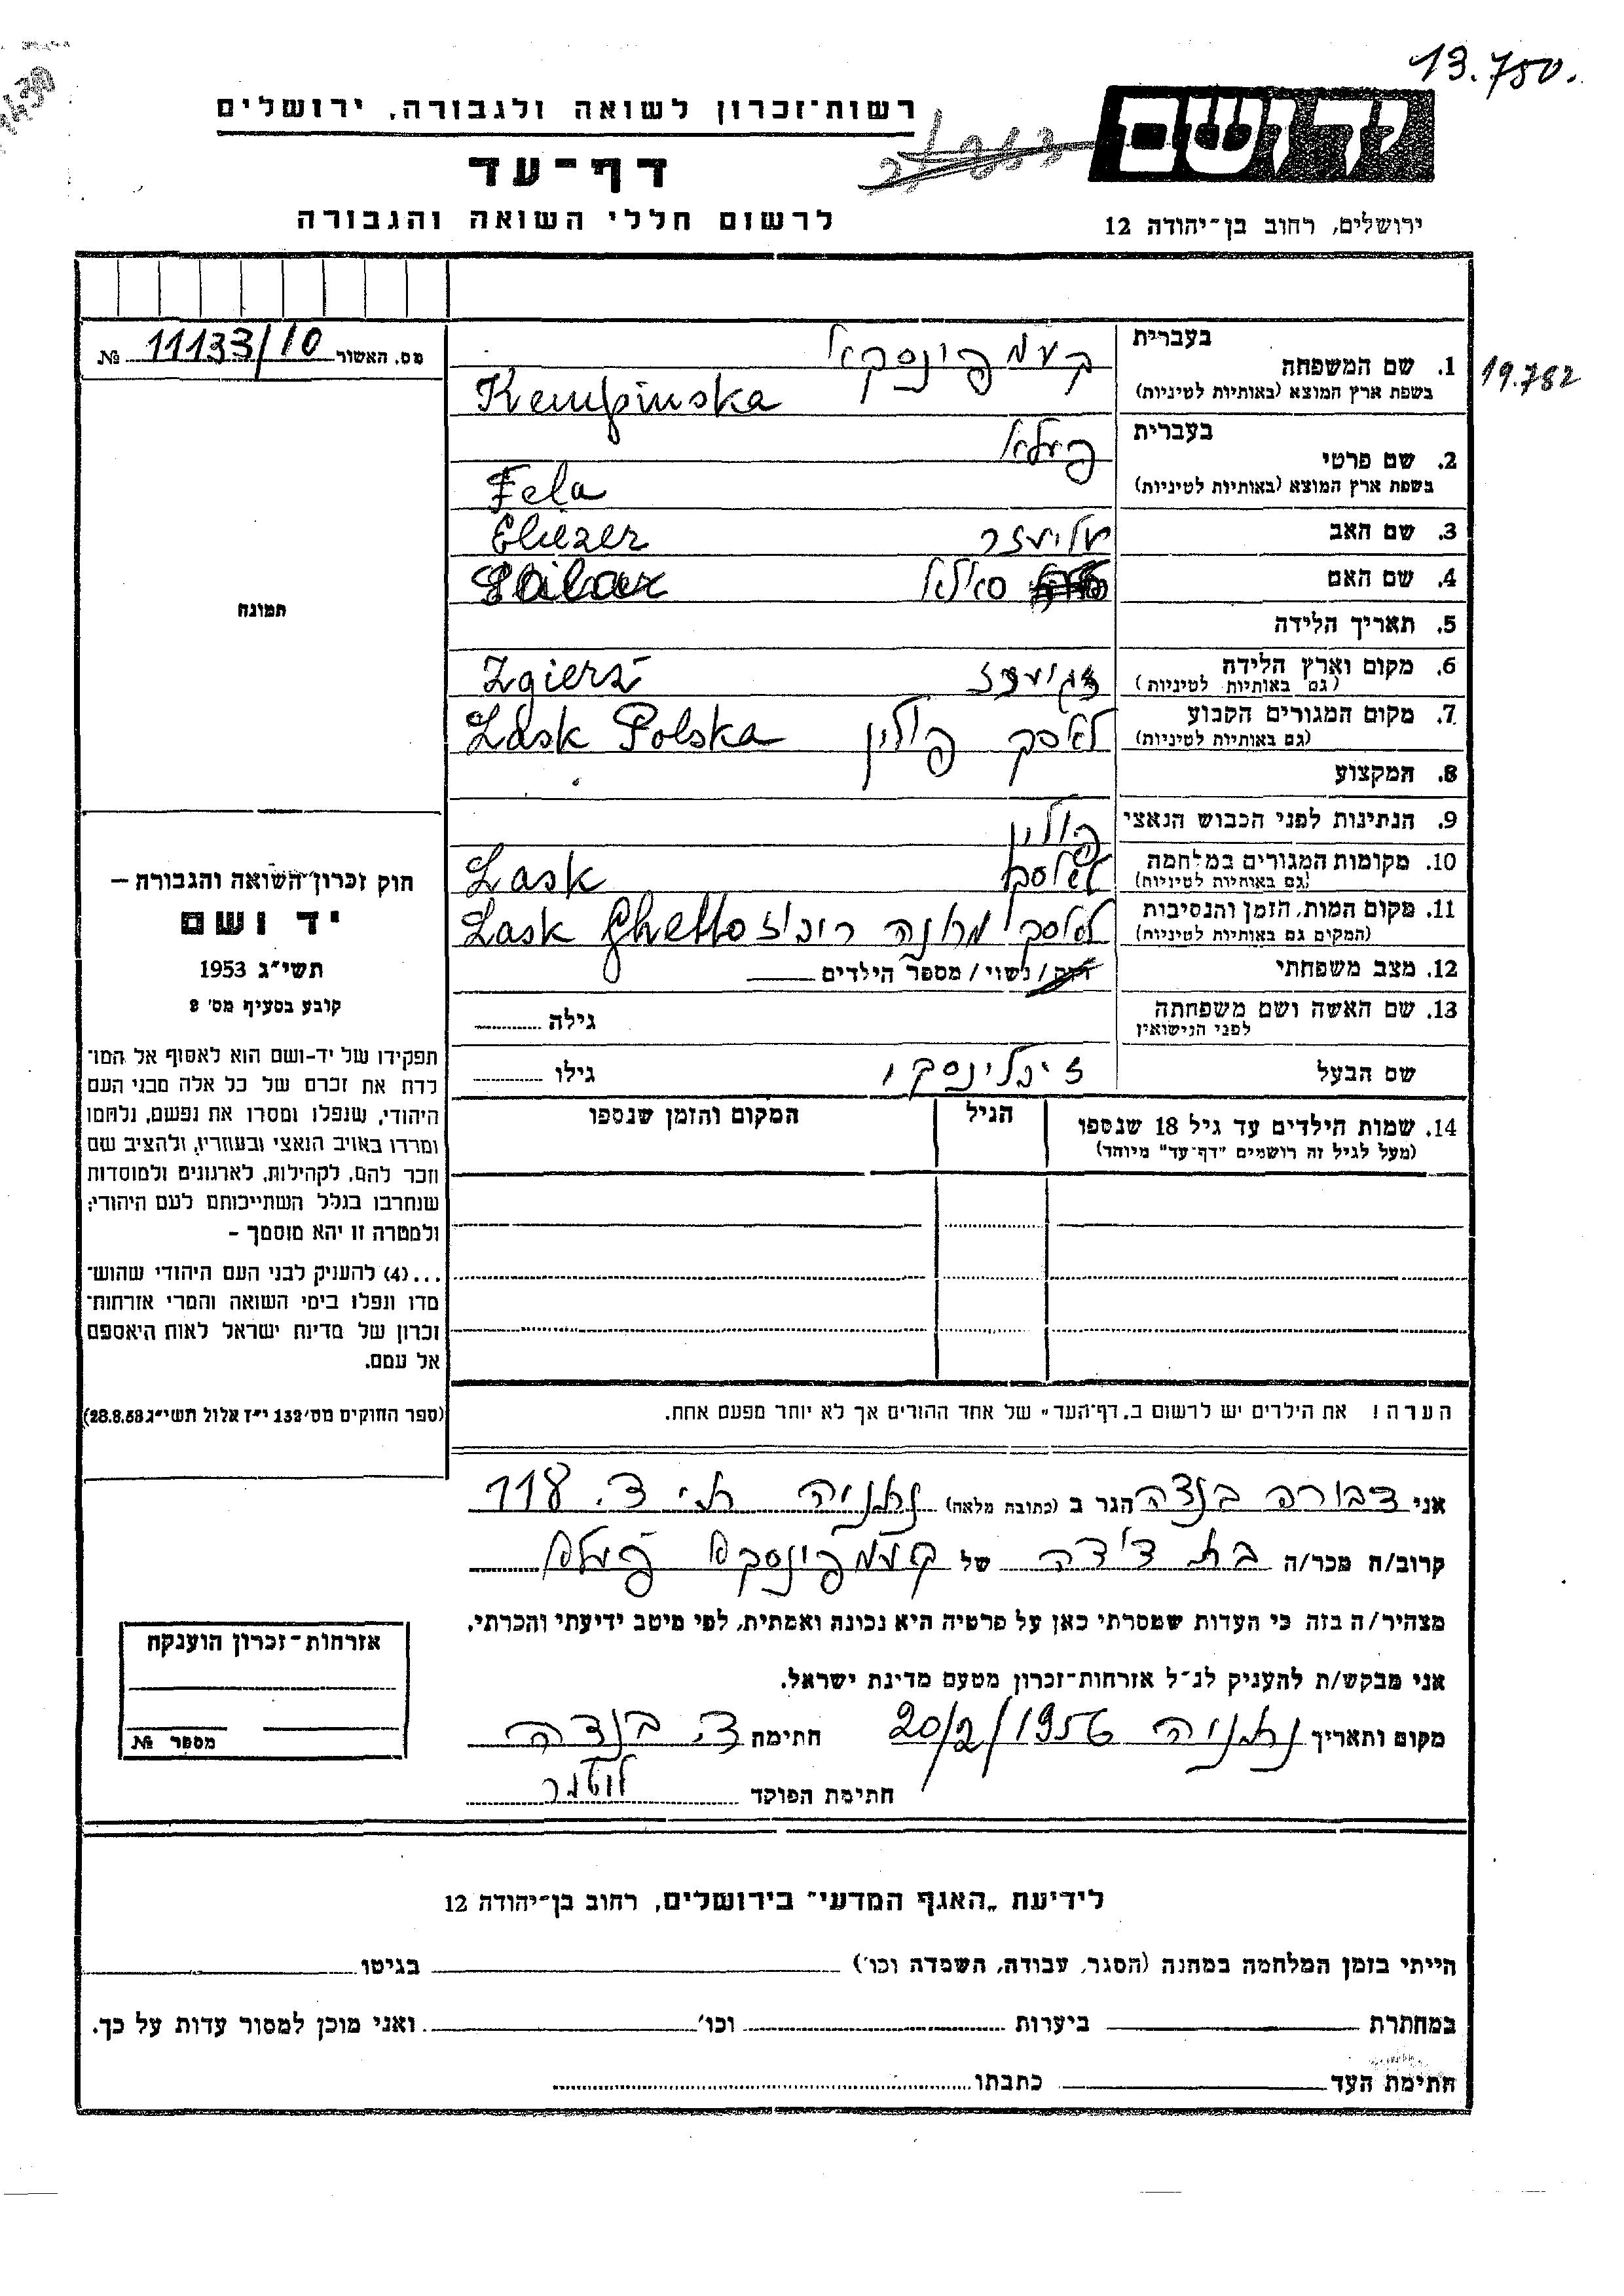 13.750.
רשות־זכרון לשואה ולגבורה, ירושלים
יד ושם
דף־עד
לרשום חללי השואה והגבורה
ירושלים, רחוב בן־יהודה 12
מס. האשור 11133/10 №
19.782
בעברית
1. שם המשפחה קעמפינסקא
בשפת ארץ המוצא (באותיות לטיניות) Kempinska
בעברית
2. שם פרטי פעלא
בשפת ארץ המוצא (באותיות לטיניות) Fela
3. שם האב אליעזר Eliezer
4. שם האם
5. תאריך הלידה
6. מקום וארץ הלידה זגיערז Zgierz
(גם באותיות לטיניות)
7. מקום המגורים הקבוע לאסק פולין Lask Polska
(גם באותיות לטיניות)
8. המקצוע
9. הנתינות לפני הכבוש הנאצי פולין
10. מקומות המגורים במלחמה Lask
(גם באותיות לטיניות)
11. מקום המות, הזמן והנסיבות Lask Ghetto
(המקום גם באותיות לטיניות)
12. מצב משפחתי רוק/נשוי/מספר הילדים
13. שם האשה ושם משפחתה גילה
לפני הנישואין
שם הבעל גילו
14. שמות הילדים עד גיל 18 שנספו הגיל המקום והזמן שנספו
(מעל לגיל זה רושמים "דף־עד" מיוחד)
תמונה
חוק זכרון השואה והגבורה —
יד ושם
תשי״ג 1953
קובע בסעיף מס' 8
תפקידו של יד-ושם הוא לאסוף אל המו־
לדת את זכרם של כל אלה מבני העם
היהודי, שנפלו ומסרו את נפשם, נלחמו
ומרדו באויב הנאצי ובעוזריו, ולהציב שם
וזכר להם, לקהילות, לארגונים ולמוסדות
שנחרבו בגלל השתייכותם לעם היהודי;
ולמטרה זו יהא מוסמך –
...(4) להעניק לבני העם היהודי שהוש־
מדו ונפלו בימי השואה והמרי אזרחות־
זכרון של מדינת ישראל לאות היאספם
אל עמם.
(ספר החוקים מס' 132 י״ז אלול תשי״ג 28.8.53)
הערה! את הילדים יש לרשום ב„דף־העד" של אחד ההורים אך לא יותר מפעם אחת.
אני דבורה בנדה הגר ב (כתובת מלאה) נתניה ת.ד. 118
קרוב/ה מכר/ה בת דודה של קעמפינסקא פעלא
מצהיר/ה בזה כי העדות שמסרתי כאן על פרטיה היא נכונה ואמתית, לפי מיטב ידיעתי והכרתי.
אני מבקש/ת להעניק לנ״ל אזרחות־זכרון מטעם מדינת ישראל.
מקום ותאריך נתניה 20/2/1956 חתימה ד. בנדה
חתימת הפוקד
אזרחות־זכרון הוענקה
מספר №
לידיעת „האגף המדעי" בירושלים, רחוב בן־יהודה 12
הייתי בזמן המלחמה במחנה (הסגר, עבודה, השמדה וכו') בגיטו
במחתרת ביערות וכו' ואני מוכן למסור עדות על כך.
חתימת העד כתבתו